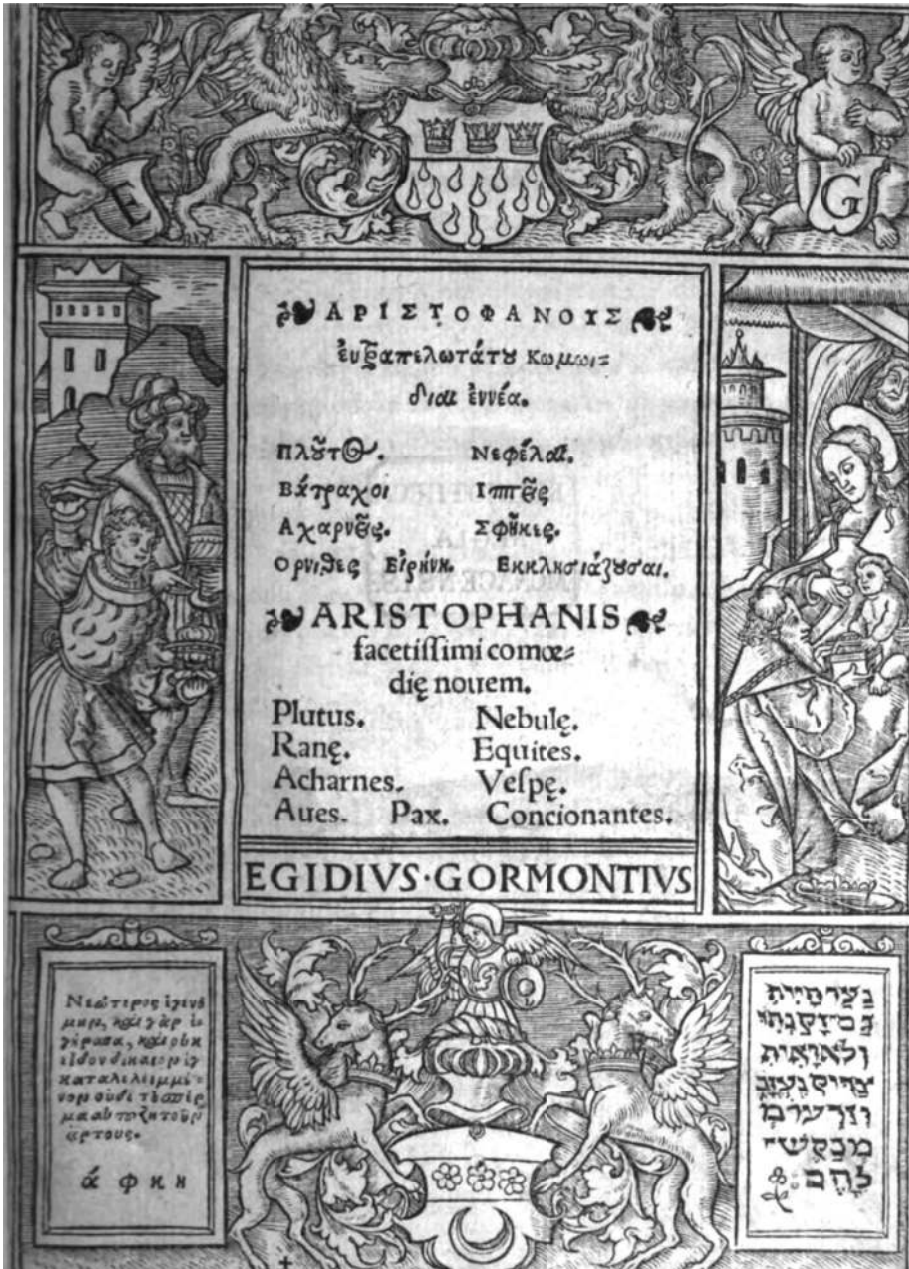 E G
ΑΡΙΣΤΟΦΑΝΟΥΣ
ἐυτραπελωτάτȣ Κωμωι⸗
δίαι ἐννέα.
Πλȣ͂τος. Νεφέλαι.
Βάτραχοι Ιππεῖς
Αχαρνεῖς. Σφῆκες.
Ορνιθες Εἰρήνη. Εκκλησιάζȣσαι.
ARISTOPHANIS
facetiſſimi comœ⸗
dię nouem.
Plutus. Nebulę.
Ranę. Equites.
Acharnes. Veſpę.
Aues. Pax. Concionantes.
EGIDIVS·GORMONTIVS
Νεώτερος ἐγενό
μην, καὶ γὰρ ἐ
γήρασα, καὶ οὐκ
εἶδον δίκαιον ἐγ
καταλελειμμέ⸗
νον οὐδὲ τὸ σπέρ
μα αὐτοῦ ζητοῦν
ἄρτους.
ά φ κ η
נַעַר הָיִיתִי
גַּם זָקַנְתִּי
וְלֹא רָאִיתִי
צַדִּיק נֶעֱזָב
וְזַרְעוֹ
מְבַקֶּשׁ
לָחֶם